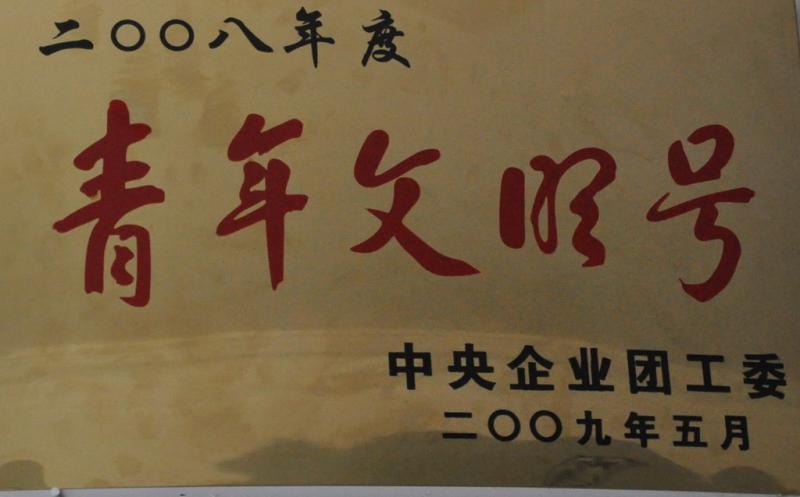 二〇〇八年度
青年文明号
中央企业团工委
二〇〇九年五月